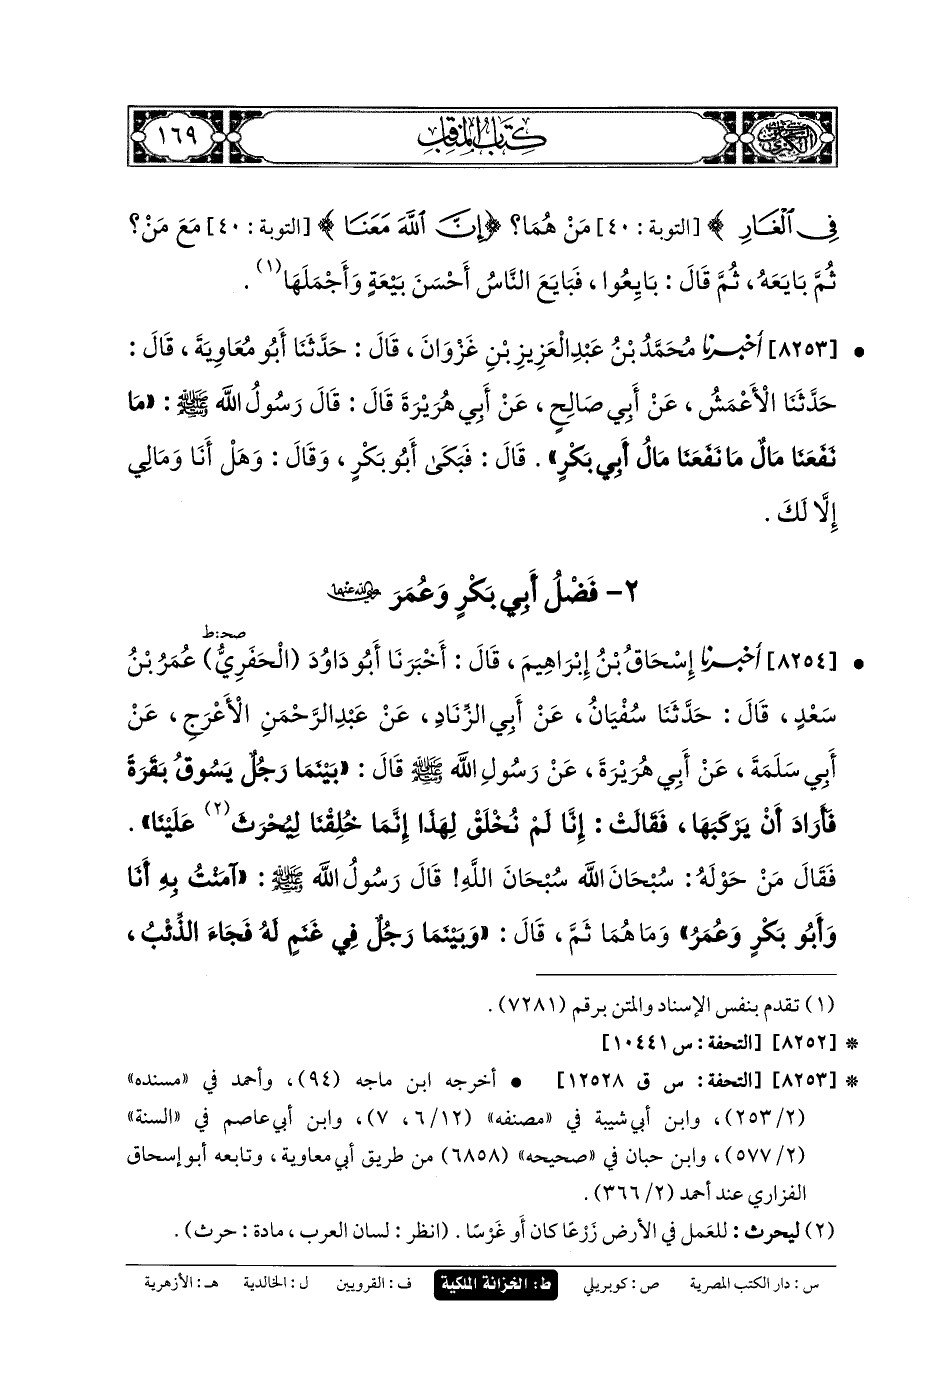 كتاب المناقب
١٦٩
فِي ٱلْغَارِ ﴾ [التوبة: ٤٠] مَنْ هُمَا؟ ﴿إِنَّ ٱللَّهَ مَعَنَا ﴾ [التوبة: ٤٠] مَعَ مَنْ؟
ثُمَّ بَايَعَهُ، ثُمَّ قَالَ: بَايِعُوا، فَبَايَعَ النَّاسُ أَحْسَنَ بَيْعَةٍ وَأَجْمَلَهَا(١).
• [٨٢٥٣] أخبرنا مُحَمَّدُ بْنُ عَبْدِالْعَزِيزِ بْنِ غَزْوَانَ، قَالَ: حَدَّثَنَا أَبُو مُعَاوِيَةَ، قَالَ:
حَدَّثَنَا الْأَعْمَشُ، عَنْ أَبِي صَالِحٍ، عَنْ أَبِي هُرَيْرَةَ قَالَ: قَالَ رَسُولُ اللَّه ﷺ: «مَا
نَفَعَنَا مَالٌ مَا نَفَعَنَا مَالُ أَبِي بَكْرٍ». قَالَ: فَبَكَى أَبُو بَكْرٍ، وَقَالَ: وَهَلْ أَنَا وَمَالِي
إِلَّا لَكَ.
٢- فَضْلُ أَبِي بَكْرٍ وَعُمَرَ رضي الله عنهما
صحـ: ط
• [٨٢٥٤] أخبرنا إِسْحَاقُ بْنُ إِبْرَاهِيمَ، قَالَ: أَخْبَرَنَا أَبُو دَاوُدَ (الْحَفَرِيُّ) عُمَرُ بْنُ
سَعْدٍ، قَالَ: حَدَّثَنَا سُفْيَانُ، عَنْ أَبِي الزِّنَادِ، عَنْ عَبْدِالرَّحْمَنِ الْأَعْرَجِ، عَنْ
أَبِي سَلَمَةَ، عَنْ أَبِي هُرَيْرَةَ، عَنْ رَسُولِ اللَّه ﷺ قَالَ: «بَيْنَمَا رَجُلٌ يَسُوقُ بَقَرَةً
فَأَرَادَ أَنْ يَرْكَبَهَا، فَقَالَتْ: إِنَّا لَمْ نُخْلَقْ لِهَذَا إِنَّمَا خُلِقْنَا لِيُحْرَثَ(٢) عَلَيْنَا».
فَقَالَ مَنْ حَوْلَهُ: سُبْحَانَ اللَّه سُبْحَانَ اللَّهِ! قَالَ رَسُولُ اللَّه ﷺ: «آمَنْتُ بِهِ أَنَا
وَأَبُو بَكْرٍ وَعُمَرُ» وَمَا هُمَا ثَمَّ، قَالَ: «وَبَيْنَمَا رَجُلٌ فِي غَنَمٍ لَهُ فَجَاءَ الذِّئْبُ،
(١) تقدم بنفس الإسناد والمتن برقم (٧٢٨١).
* [٨٢٥٢] [التحفة: س ١٠٤٤١]
* [٨٢٥٣] [التحفة: س ق ١٢٥٢٨] • أخرجه ابن ماجه (٩٤)، وأحمد في «مسنده»
(٢/٢٥٣)، وابن أبي شيبة في «مصنفه» (١٢/٦، ٧)، وابن أبي عاصم في «السنة»
(٢/٥٧٧)، وابن حبان في «صحيحه» (٦٨٥٨) من طريق أبي معاوية، وتابعه أبو إسحاق
الفزاري عند أحمد (٢/٣٦٦).
(٢) ليحرث: للعَمل في الأرض زَرْعًا كان أَو غَرْسًا. (انظر: لسان العرب، مادة: حرث).
س: دار الكتب المصرية ص: كوبريلي ط: الخزانة الملكية ف: القرويين ل: الخالدية هـ: الأزهرية